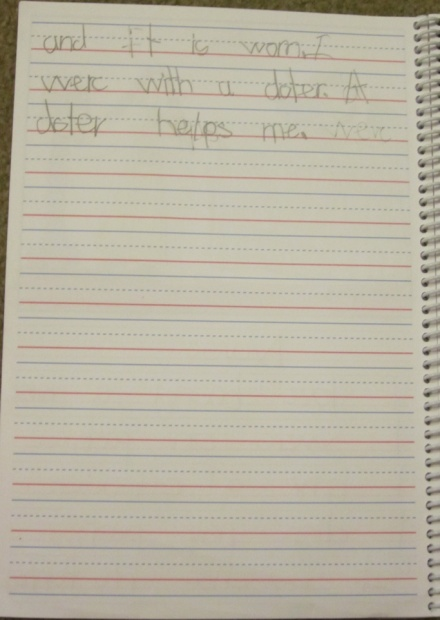 and it is worm. I
werc with a doter. A
doter helps me.